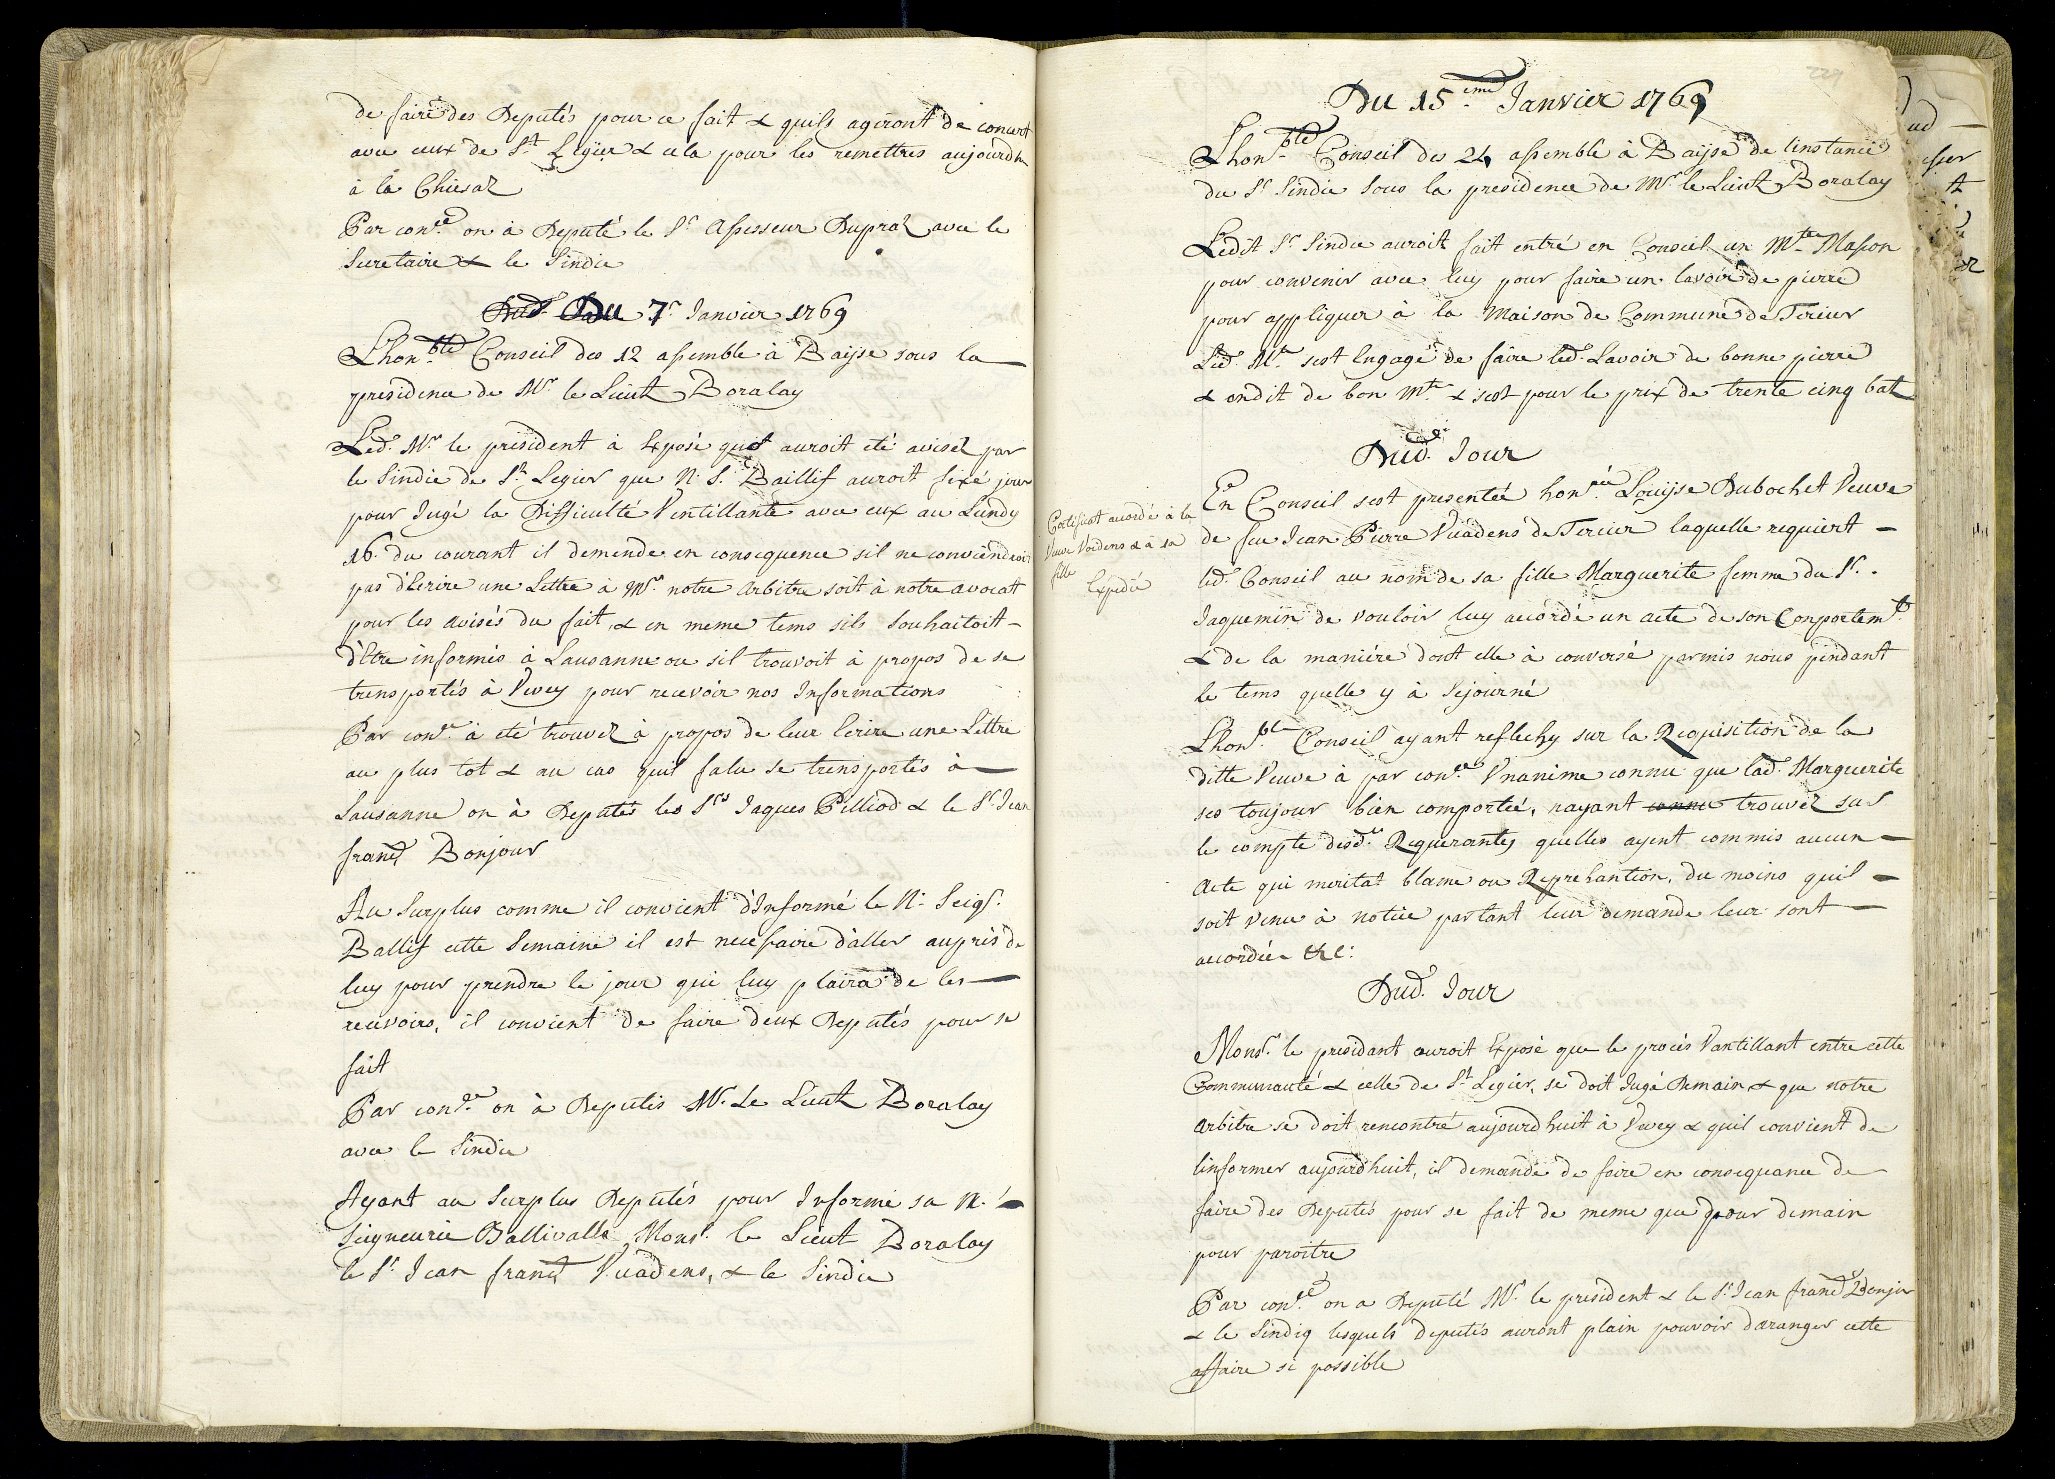 de faire des Deputés pour ce fait & quils agiront de concert
avec ceux de St. Legier & cela pour les remettres aujourdh
à la Chiesaz
Par con.ce on à Deputé le Sr. Assesseur Dupraz avec le
Secretaire & le Sindic
Du 7e. Janvier 1769
Lhon.ble Conseil des 12 assemble à Baijse sous la
presidence de Mr. le Lieut Boralay
Led. Mr. le president à Exposé qu auroit eté avisez par
le Sindic de St. Legier que N. S. Baillif auroit fixé jour
pour Jugé la Difficulté Ventillante avec eux au Lundy
16. du courant il demende en consequence sil ne conviendroit
pas d'Ecrire une Lettre à Mr. notre Arbitre soit à notre avocat
pour les avisés du fait, & en meme tems sils souhaitoit
d'Etre informés à Lausanne ou sil trouvoit à propos de se
transportés à Vevey pour recevoir nos Informations
Par con.ce à eté trouvez à propos de leur Ecrire une Lettre
au plus tot & au cas quil falu se transportés à
Lausanne on à Deputés les Srs Jaques Pilliod & le Sr. Jean
franç Bonjour
Au Surplus comme il convient d'Informé le N. Seigr.
Ballif cette Semaine il est necessaire d'aller aupres de
luy pour prendre le jour qui luy plaira de les
recevoirs, il convient de faire deux Deputés pour se
fait
Par con.ce on à Deputés Mr. Le Lieut Boralay
avec le Sindic
Ayant au Surplus Deputés pour Informé sa N.
Seigneurie Ballivalle Monsr. le Lieut Boralay
le Sr. Jean franç Vuadens, & le Sindic
229
Du 15.eme Janvier 1769
Lhon.ble Conseil des 24 assemble à Baijse de linstance
du Sr. Sindic sous la presidence de Mr. le Lieut Boralay
Ledit Sr. Sindic auroit fait entré en Conseil un Mtre Masson
pour convenir avec luy pour faire un lavoir de pierre
pour appliquer à la Maison de Commune de Tercier
Led. Mtre sest Engagé de faire led. Lavoir de bonne pierre
& ondit de bon Mtre & sest pour le prix de trente cinq batz
Dud. Jour
Certificat acordé à la
Veuve Vadens & à sa
fille
Expedié
En Conseil sest presentée hon.rée Louijse Dubochet Veuve
de feu Jean Pierre Vuadens de Tercier laquelle requiert
led. Conseil au nom de sa fille Marguerite femme du Sr.
Jaquemin de vouloir luy accordé un acte de son Conportemt.
& de la maniére dont elle à conversé parmis nous pendant
le tems quelle y à Sejourné
Lhon.ble Conseil ayant reflechy sur la Requisition de la
ditte Veuve à par con.ce Vnanime connu que lad. Marguerite
ses toujour bien comportée, nayant connu trouvez sur
le compte desd. Requerantes quelles ayent commis aucun
Acte qui meritat blame ou Reprehantion, du moins quil
soit venu à notice partant leur demande leur sont
accordée &c:
Dud. Jour
Monsr. le presidant auroit Exposé que le procés Vantillant entre cette
Communauté & celle de St Legier, se doit Jugé Demain & que notre
Arbitre se doit rencontré aujourdhuit à Vevey & quil convient de
linformer aujourdhuit, il demande de faire en consequance de
faire des Deputés pour se fait de meme que pour demain
pour paroitre
Par con.ce on a Deputé Mr. le president & le Sr. Jean franç Bonjor
& le Sindiq lesquels deputés auront plain pouvoir daranger cette
affaire si possible